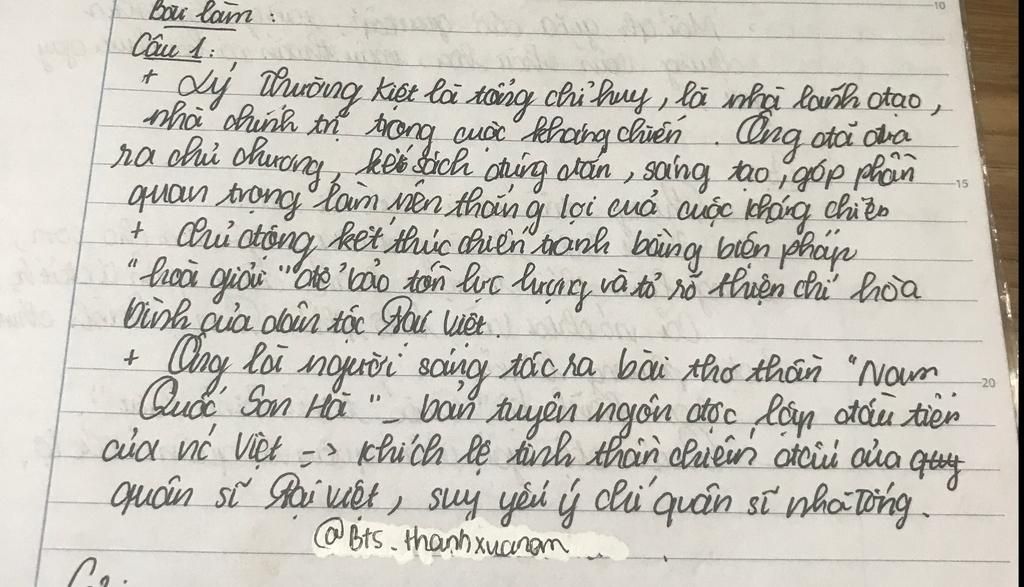 Bài làm :
Câu 1 :
+ Lý Thường Kiệt là tổng chỉ huy, là nhà lãnh đạo,
nhà chính trị trong cuộc kháng chiến. Ông đã đưa
ra chủ chương, kế sách đúng đắn, sáng tạo, góp phần
quan trọng làm nên thắng lợi cuả cuộc kháng chiến
+ Chủ động kết thúc chiến tranh bằng biên pháp
"hoà giải" để bảo tồn lực lượng và tỏ rõ thiện chí hòa
bình của dân tộc Đại Việt.
+ Ông là người sáng tác ra bài thơ thần "Nam
Quốc Sơn Hà" - bản tuyên ngôn độc lập đầu tiên
của nc Việt => khích lệ tinh thần chiến đấu của quy
quân sĩ Đại Việt, suy yếu ý chí quân sĩ nhà Tống.
@Bts_thanhxuanam
10
15
20